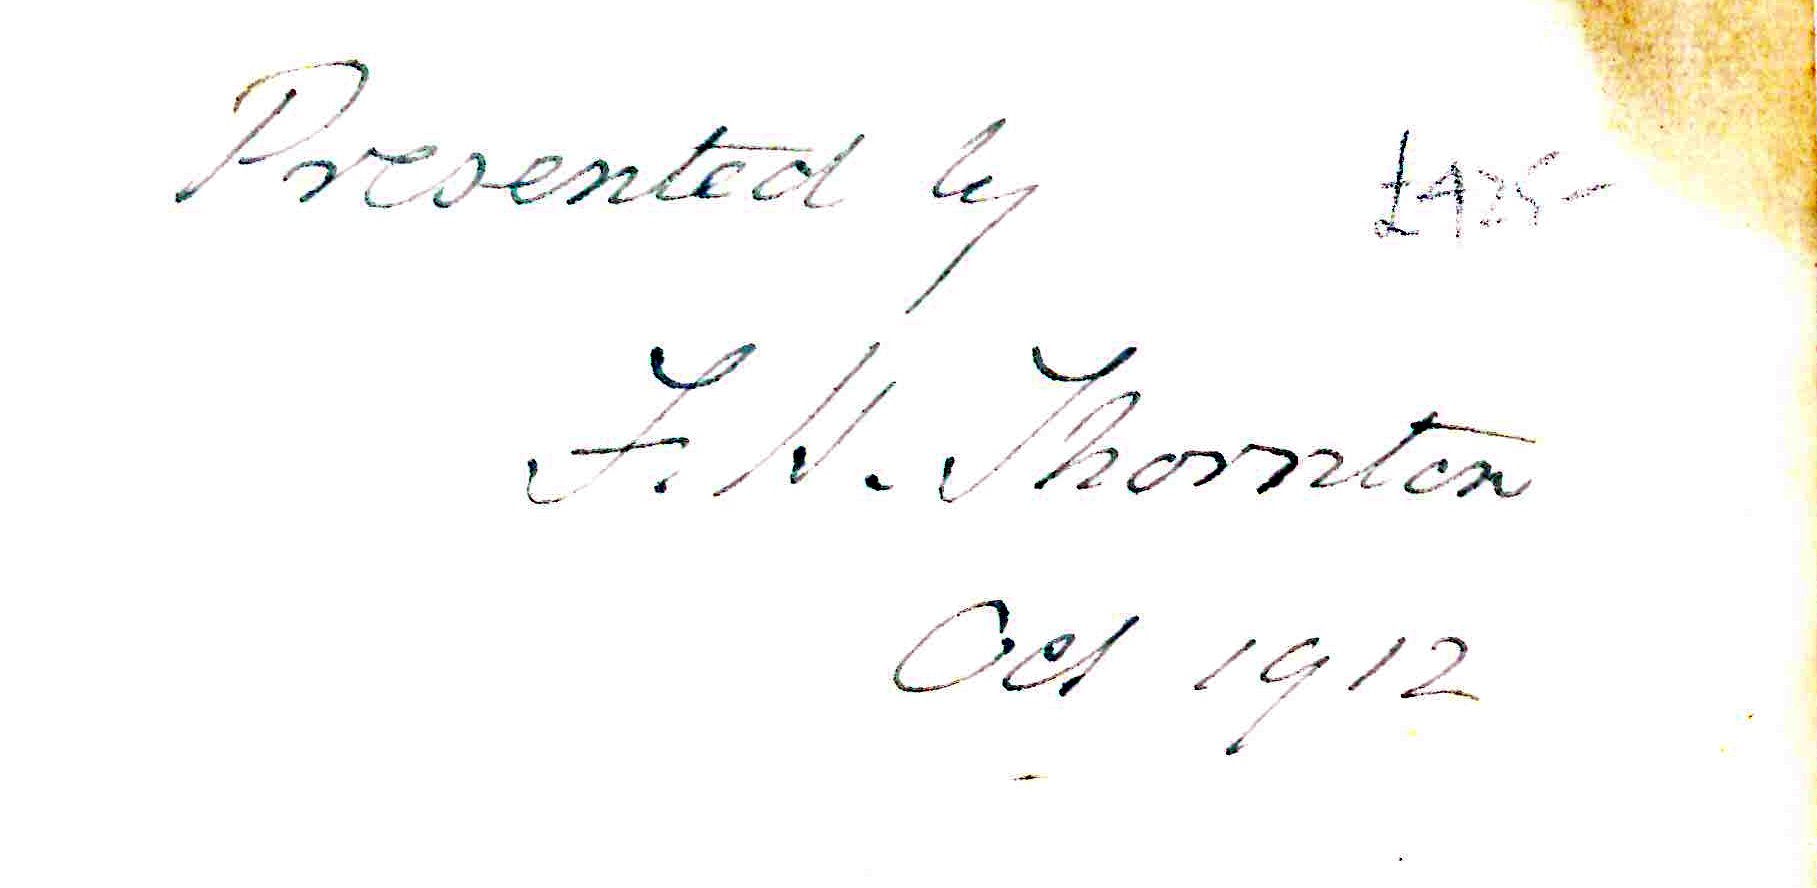 Presented by
£925-
F. H. Thornton
Oct 1912